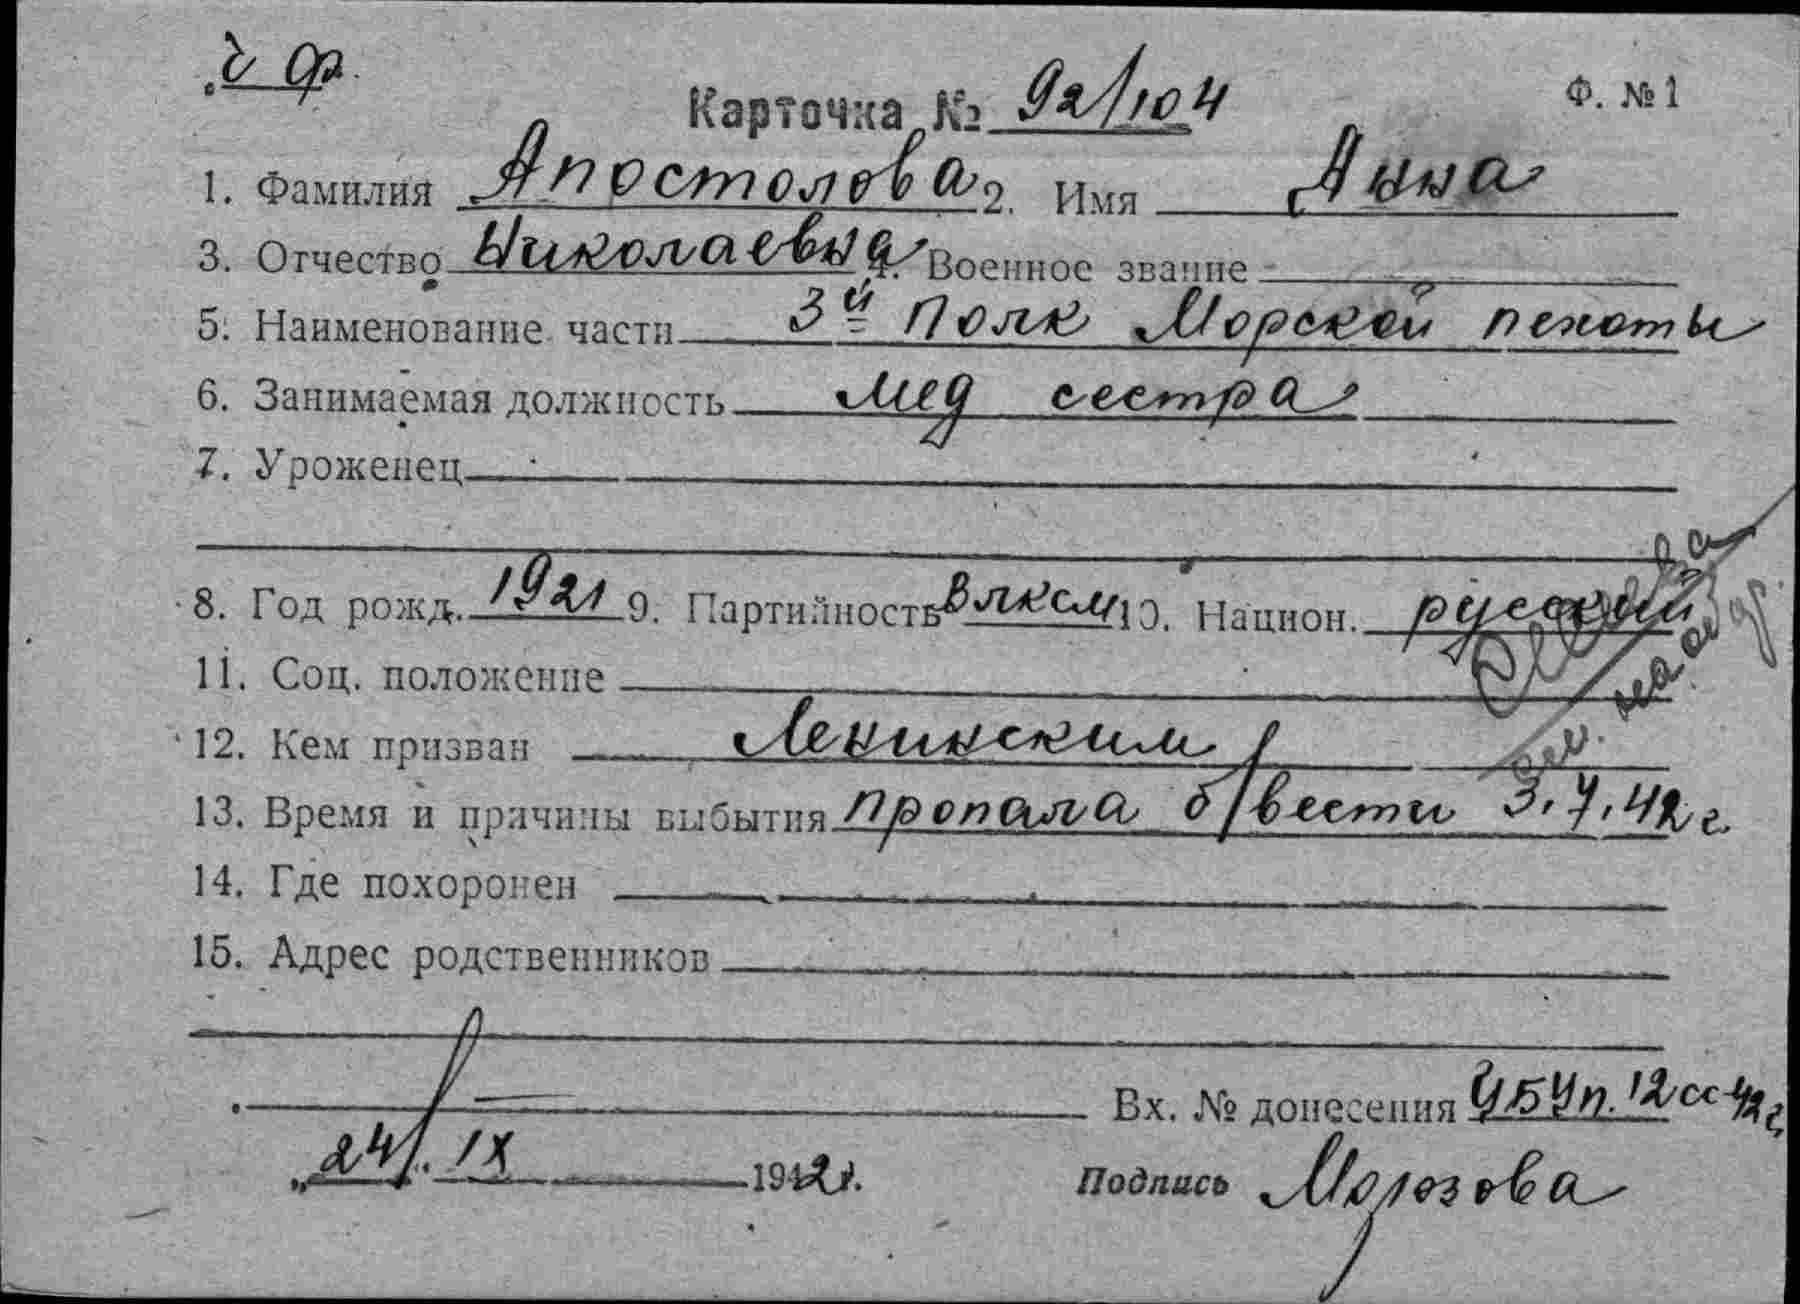 ч ф.
Карточка № 92/104 Ф. № 1
1. Фамилия Апостолова 2. Имя Анна
3. Отчество Николаевна 4. Военное звание
5. Наименование части 3й Полк Морской пехоты
6. Занимаемая должность мед сестра
7. Уроженец
8. Год рожд. 1921 9. Партийность ВЛКСМ 10. Национ. русский
11. Соц. положение
12. Кем призван Ленинским
13. Время и причины выбытия пропала б/вести 3.7.42 г.
14. Где похоронен
15. Адрес родственников
Вх. № донесения УБУп. 12сс-42г.
„24". IX 1942 г. Подпись Морозова